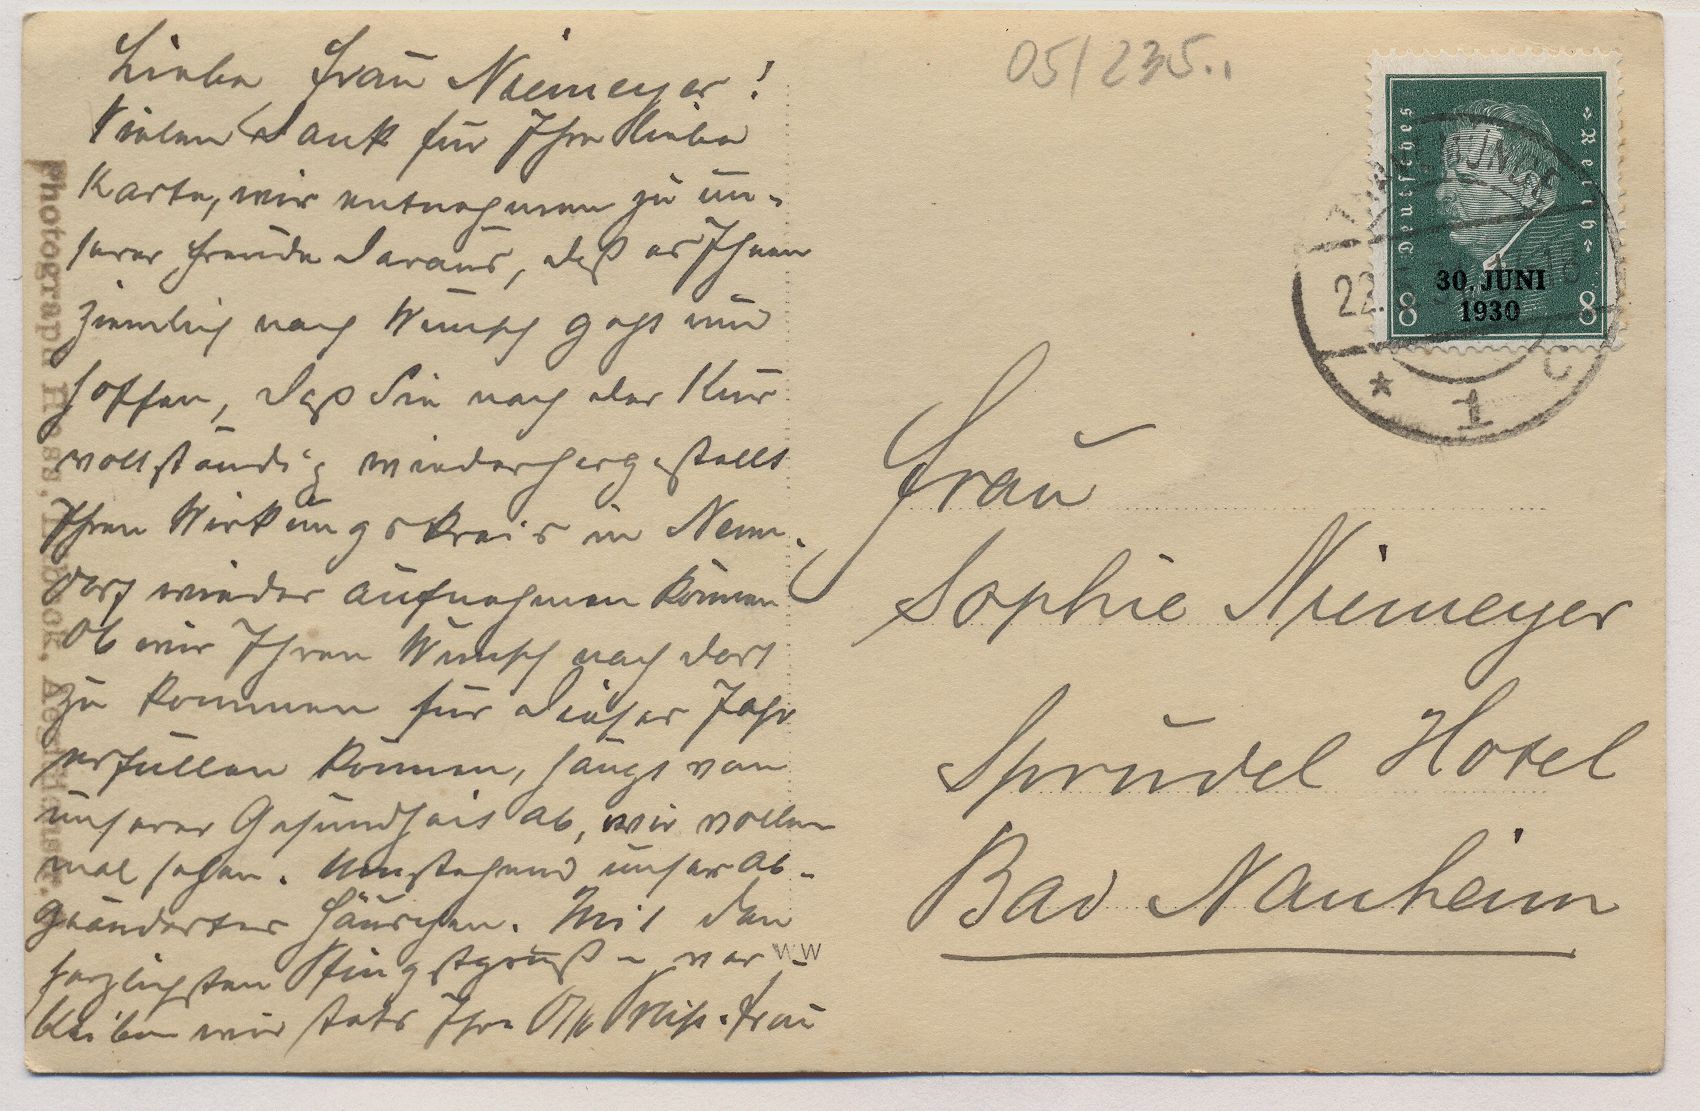 Liebe Frau Niemeyer!
Vielen Dank für Ihre liebe
Karte, wir entnehmen zu un-
serer Freude daraus, daß es Ihnen
ziemlich nach Wunsch geht und
hoffen, daß Sie nach der Kur
vollständig wiederhergestellt
Ihren Wirkungskreis in Nenn-
dorf wieder aufnehmen können
Ob wir Ihren Wunsch nach dort
zu kommen für dieses Jahr
erfüllen können, hängt von
unserer Gesundheit ab, wir wollen
mal sehen. Umstehend unser ab-
geändertes Häuschen. Mit den
herzlichsten Pfingstgrüß-n ver-
bleiben wir stets Ihre Frau
WW
Photograph Hess,
05/235.
Deutsches Reich
30. JUNI
1930
8 8
22.
* 1 c
Frau
Sophie Niemeyer
Sprudel Hotel
Bad Nauheim